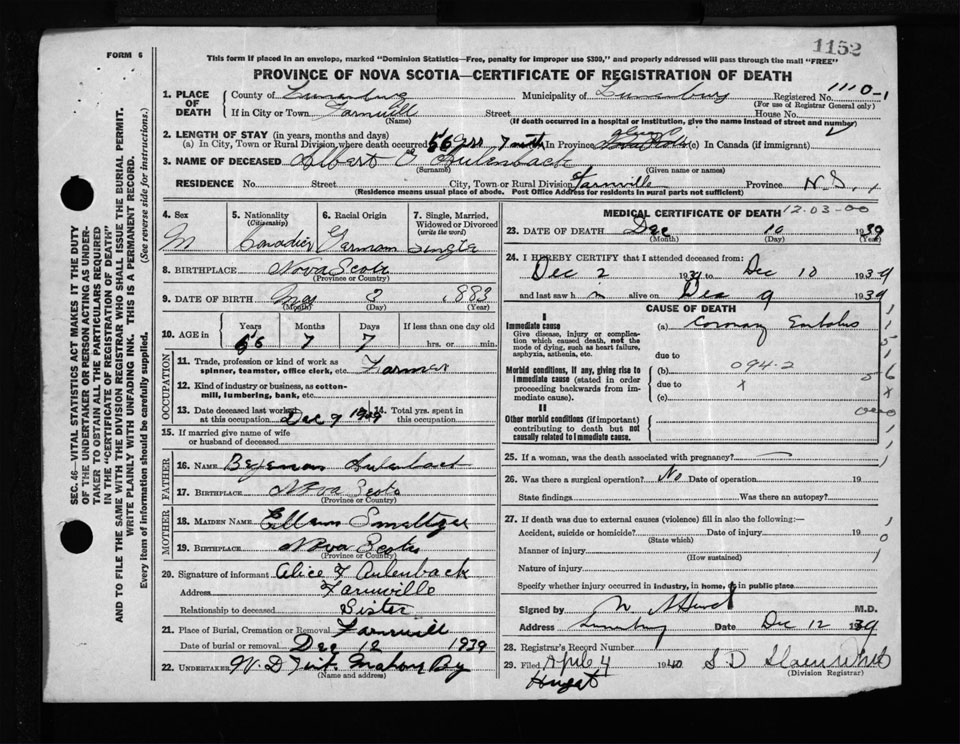 1152
FORM 6
This form if placed in an envelope, marked "Dominion Statistics—Free, penalty for improper use $300," and properly addressed will pass through the mail "FREE"
PROVINCE OF NOVA SCOTIA—CERTIFICATE OF REGISTRATION OF DEATH
SEC. 46—VITAL STATISTICS ACT MAKES IT THE DUTY
OF THE UNDERTAKER OR PERSON ACTING AS UNDER-
TAKER TO OBTAIN ALL THE PARTICULARS REQUIRED
IN THE "CERTIFICATE OF REGISTRATION OF DEATH"
AND TO FILE THE SAME WITH THE DIVISION REGISTRAR WHO SHALL ISSUE THE BURIAL PERMIT.
WRITE PLAINLY WITH UNFADING INK. THIS IS A PERMANENT RECORD.
Every item of information should be carefully supplied. (See reverse side for instructions.)
1. PLACE OF DEATH County of Lunenburg Municipality of Lunenburg Registered No. 1110-1
(For use of Registrar General only)
If in City or Town Farmville Street House No.
(Name) (If death occurred in a hospital or institution, give the name instead of street and number)
2. LENGTH OF STAY (in years, months and days)
(a) In City, Town or Rural Division, where death occurred 56 yrs 7 mths In Province Nova Scotia (c) In Canada (if immigrant)
3. NAME OF DECEASED Albert E Aulenback
(Surname) (Given name or names)
RESIDENCE No. Street City, Town or Rural Division Farmville Province N.S.
(Residence means usual place of abode. Post Office Address for residents in rural parts not sufficient)
4. Sex M
5. Nationality (Citizenship) Canadian
6. Racial Origin German
7. Single, Married, Widowed or Divorced (write the word) Single
8. BIRTHPLACE Nova Scotia
(Province or Country)
9. DATE OF BIRTH May 3 1883
(Month) (Day) (Year)
10. AGE in Years 56 Months 7 Days 7 If less than one day hrs. or min.
OCCUPATION
11. Trade, profession or kind of work as spinner, teamster, office clerk, etc. Farmer
12. Kind of industry or business, as cotton-mill, lumbering, bank, etc.
13. Date deceased last worked at this occupation Dec 9 1939 14. Total yrs. spent in this occupation
15. If married give name of wife or husband of deceased
FATHER
16. NAME Aulenback
17. BIRTHPLACE Nova Scotia
(Province or Country)
MOTHER
18. MAIDEN NAME Ellen Smeltzer
19. BIRTHPLACE Nova Scotia
(Province or Country)
20. Signature of informant Alice F Aulenback
Address Farmville
Relationship to deceased Sister
21. Place of Burial, Cremation or Removal Farmville
Date of burial or removal Dec 12 1939
22. UNDERTAKER W. D Mahone Bay
(Name and address)
MEDICAL CERTIFICATE OF DEATH 12-03-00
23. DATE OF DEATH Dec 10 1939
(Month) (Day) (Year)
24. I HEREBY CERTIFY that I attended deceased from:
Dec 2 1939 to Dec 10 1939
and last saw h im alive on Dec 9 1939
CAUSE OF DEATH
I
Immediate cause
Give disease, injury or complication which caused death, not the mode of dying, such as heart failure, asphyxia, asthenia, etc.
(a) Coronary Embolus
due to
Morbid conditions, if any, giving rise to immediate cause (stated in order proceeding backwards from immediate cause).
(b) 094-2
due to x
(c)
II
Other morbid conditions (if important) contributing to death but not causally related to immediate cause.
25. If a woman, was the death associated with pregnancy? —
26. Was there a surgical operation? No Date of operation 19
State findings Was there an autopsy?
27. If death was due to external causes (violence) fill in also the following:—
Accident, suicide or homicide? Date of injury 19
(State which)
Manner of injury
(How sustained)
Nature of injury
Specify whether injury occurred in industry, in home, or in public place
Signed by M.D.
Address Lunenburg Date Dec 12 1939
28. Registrar's Record Number
29. Filed April 4 1940 S. D
(Division Registrar)